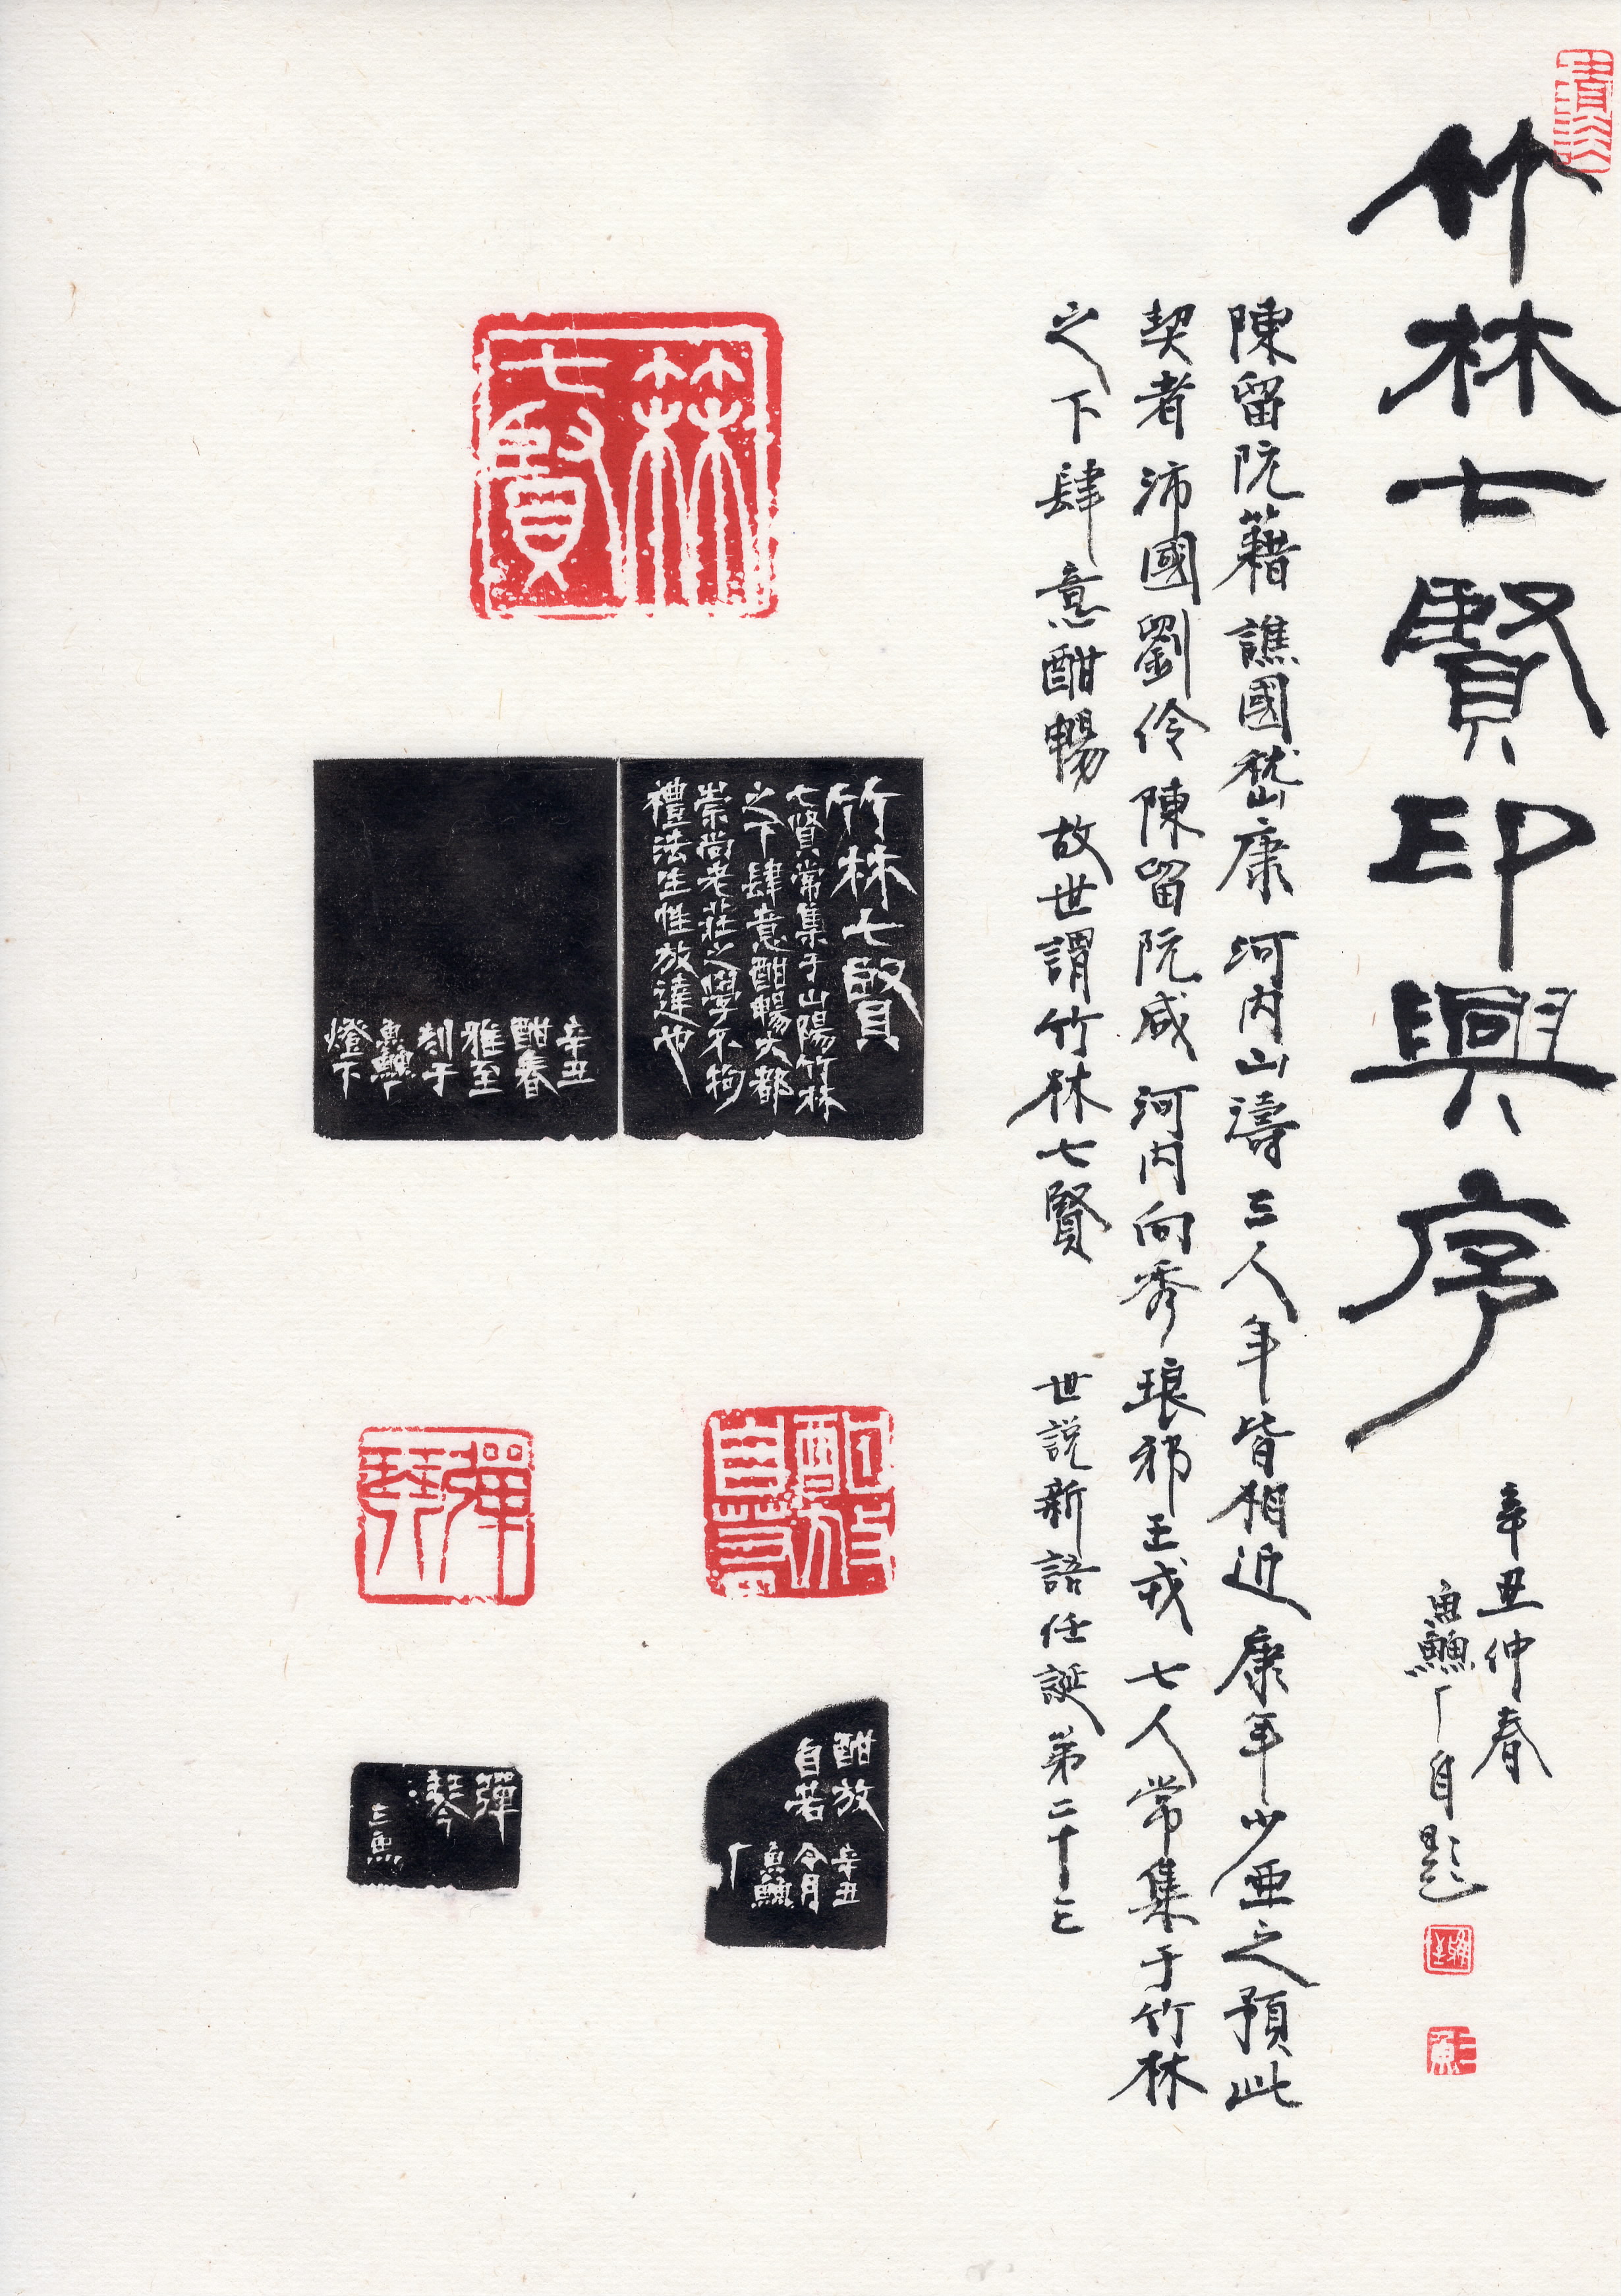 竹林七賢印興序
辛丑仲春
鱻厂自題
陳留阮藉譙國嵇康河内山濤三人年皆相近康年少亞之預此
契者沛國劉伶陳留阮咸河内向秀琅邪王戎七人常集于竹林
之下肆意酣暢故世謂竹林七賢
世説新語任誕第二十三
竹林
七賢
竹林七賢
七賢常集于山陽竹林
之下肆意酣暢大都
崇尚老莊之學不拘
禮法生性放達也
辛丑
酣春
雅至
刻于
鱻厂
燈下
酣放
自若
酣放
自若
辛丑
令月
鱻
厂
彈
琴
彈
琴
三魚